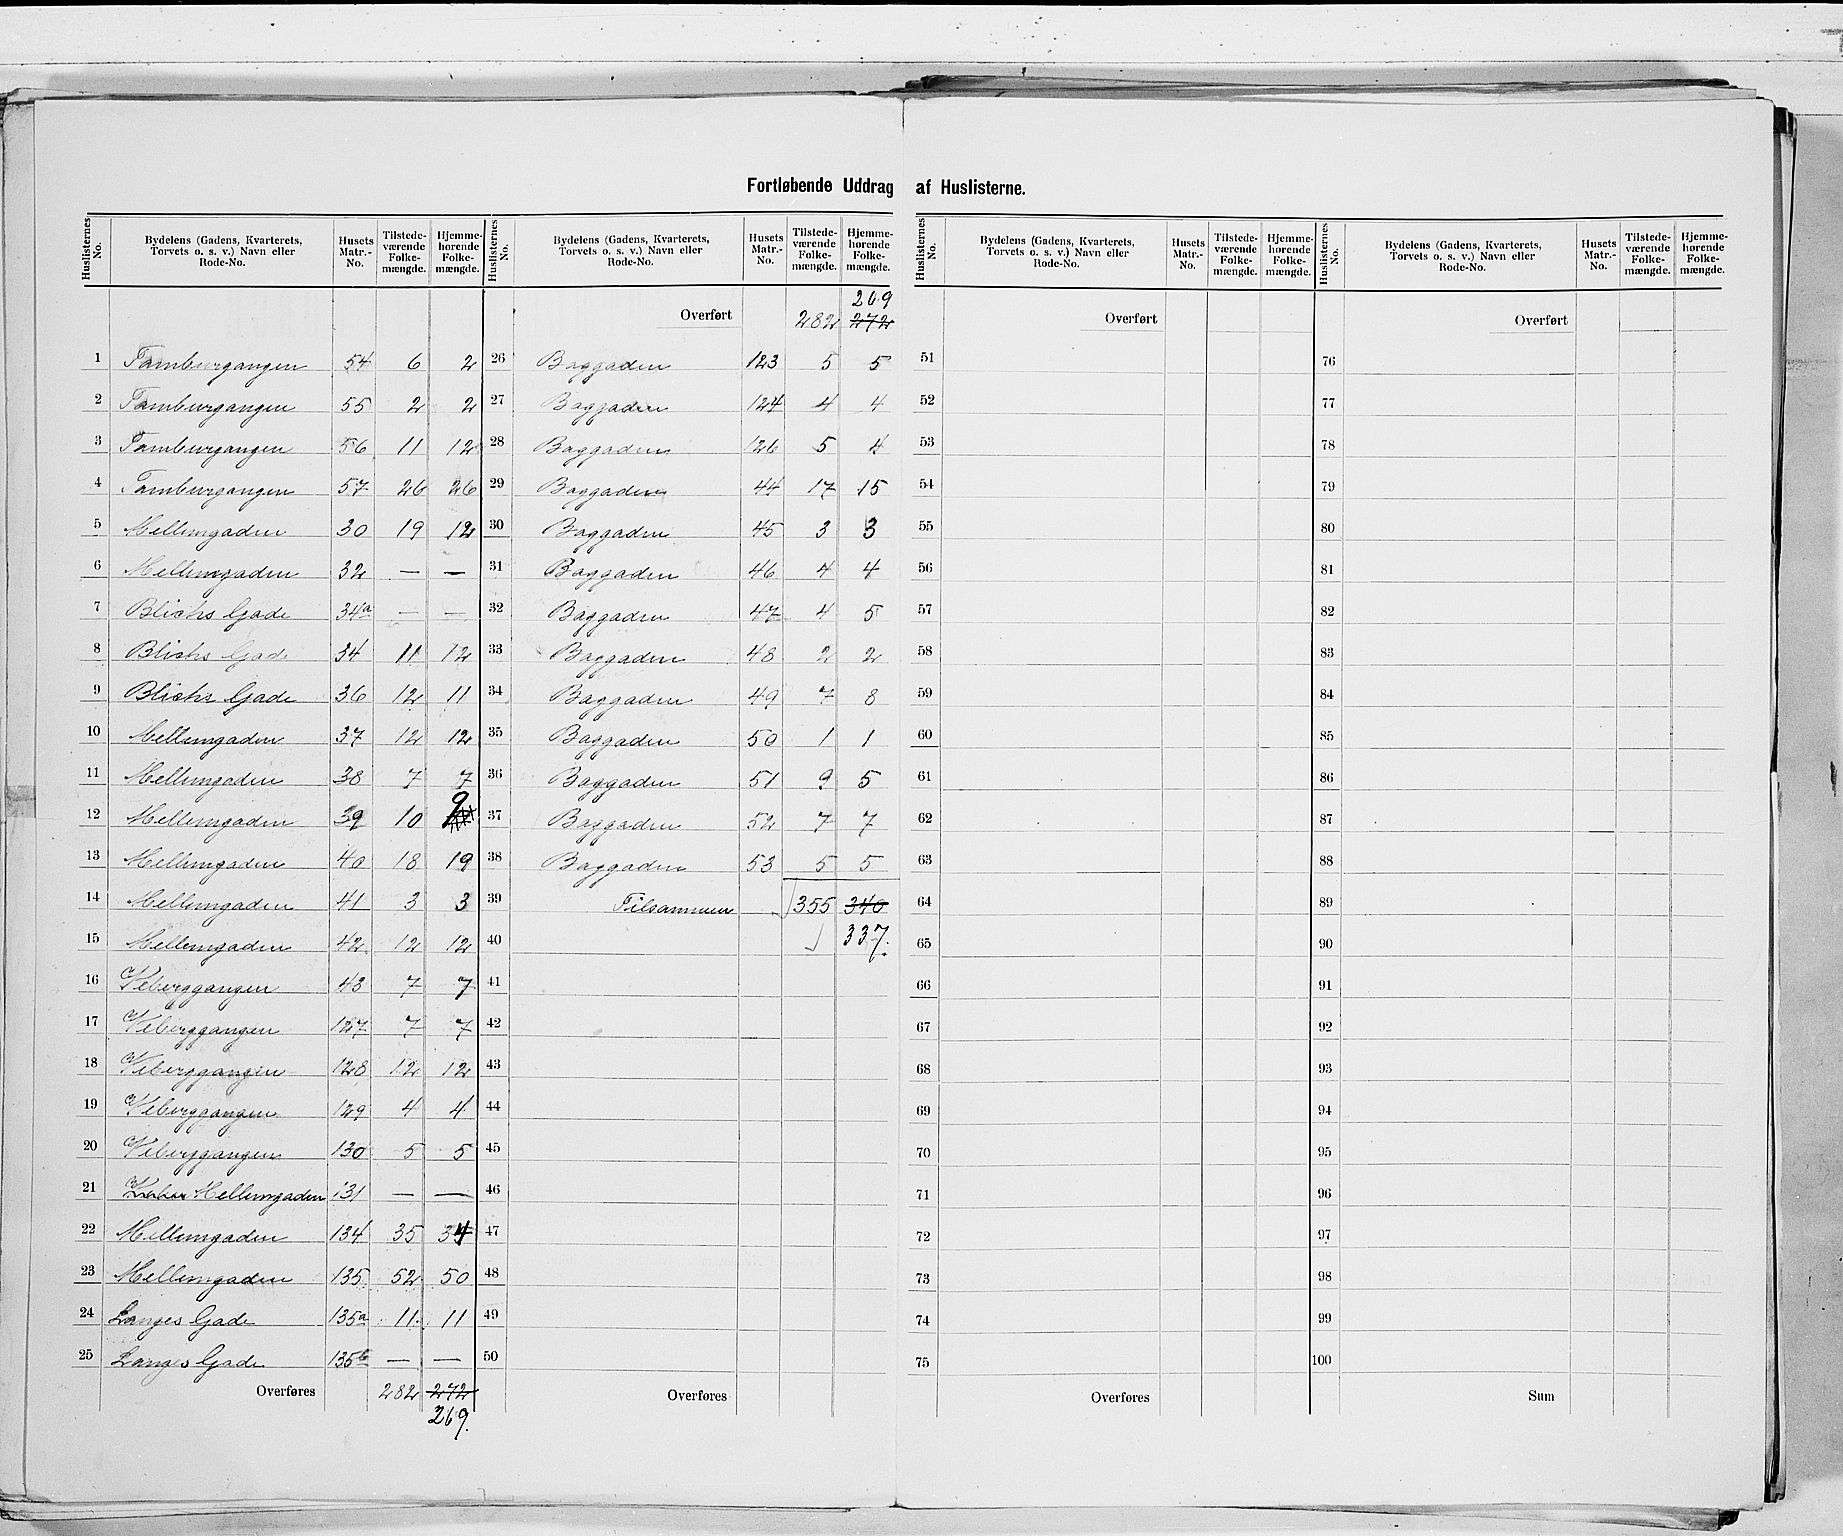 Fortløbende Uddrag af Huslisterne.
Huslisternes No. | Bydelens (Gadens, Kvarterets, Torvets o. s. v.) Navn eller Rode-No. | Husets Matr.-No. | Tilstede-værende Folke-mængde. | Hjemme-hørende Folke-mængde.
1 Tamburgangen 54 6 2
2 Tamburgangen 55 2 2
3 Tamburgangen 56 11 12
4 Tamburgangen 57 26 26
5 Mellemgaden 30 19 12
6 Mellemgaden 32 — —
7 Blichs Gade 34a — —
8 Blichs Gade 34 11 12
9 Blichs Gade 36 12 11
10 Mellemgaden 37 12 12
11 Mellemgaden 38 7 7
12 Mellemgaden 39 10 9
13 Mellemgaden 40 18 19
14 Mellemgaden 41 3 3
15 Mellemgaden 42 12 12
16 Viberggangen 43 7 7
17 Viberggangen 127 7 7
18 Viberggangen 128 12 12
19 Viberggangen 129 4 4
20 Viberggangen 130 5 5
21 Mellemgaden 131 — —
22 Mellemgaden 134 35 34
23 Mellemgaden 135 52 50
24 Langes Gade 135a 11 11
25 Langes Gade 135b — —
Overføres 282 272
269.
Huslisternes No. | Bydelens (Gadens, Kvarterets, Torvets o. s. v.) Navn eller Rode-No. | Husets Matr.-No. | Tilstede-værende Folke-mængde. | Hjemme-hørende Folke-mængde.
269
Overført 282 272
26 Baggaden 123 5 5
27 Baggaden 124 4 4
28 Baggaden 126 5 4
29 Baggaden 44 17 15
30 Baggaden 45 3 3
31 Baggaden 46 4 4
32 Baggaden 47 4 5
33 Baggaden 48 2 2
34 Baggaden 49 7 8
35 Baggaden 50 1 1
36 Baggaden 51 9 5
37 Baggaden 52 7 7
38 Baggaden 53 5 5
39 Tilsammen 355 340
40 337.
41
42
43
44
45
46
47
48
49
50
Overføres
Huslisternes No. | Bydelens (Gadens, Kvarterets, Torvets o. s. v.) Navn eller Rode-No. | Husets Matr.-No. | Tilstede-værende Folke-mængde. | Hjemme-hørende Folke-mængde.
Overført
51
52
53
54
55
56
57
58
59
60
61
62
63
64
65
66
67
68
69
70
71
72
73
74
75
Overføres
Huslisternes No. | Bydelens (Gadens, Kvarterets, Torvets o. s. v.) Navn eller Rode-No. | Husets Matr.-No. | Tilstede-værende Folke-mængde. | Hjemme-hørende Folke-mængde.
Overført
76
77
78
79
80
81
82
83
84
85
86
87
88
89
90
91
92
93
94
95
96
97
98
99
100
Sum